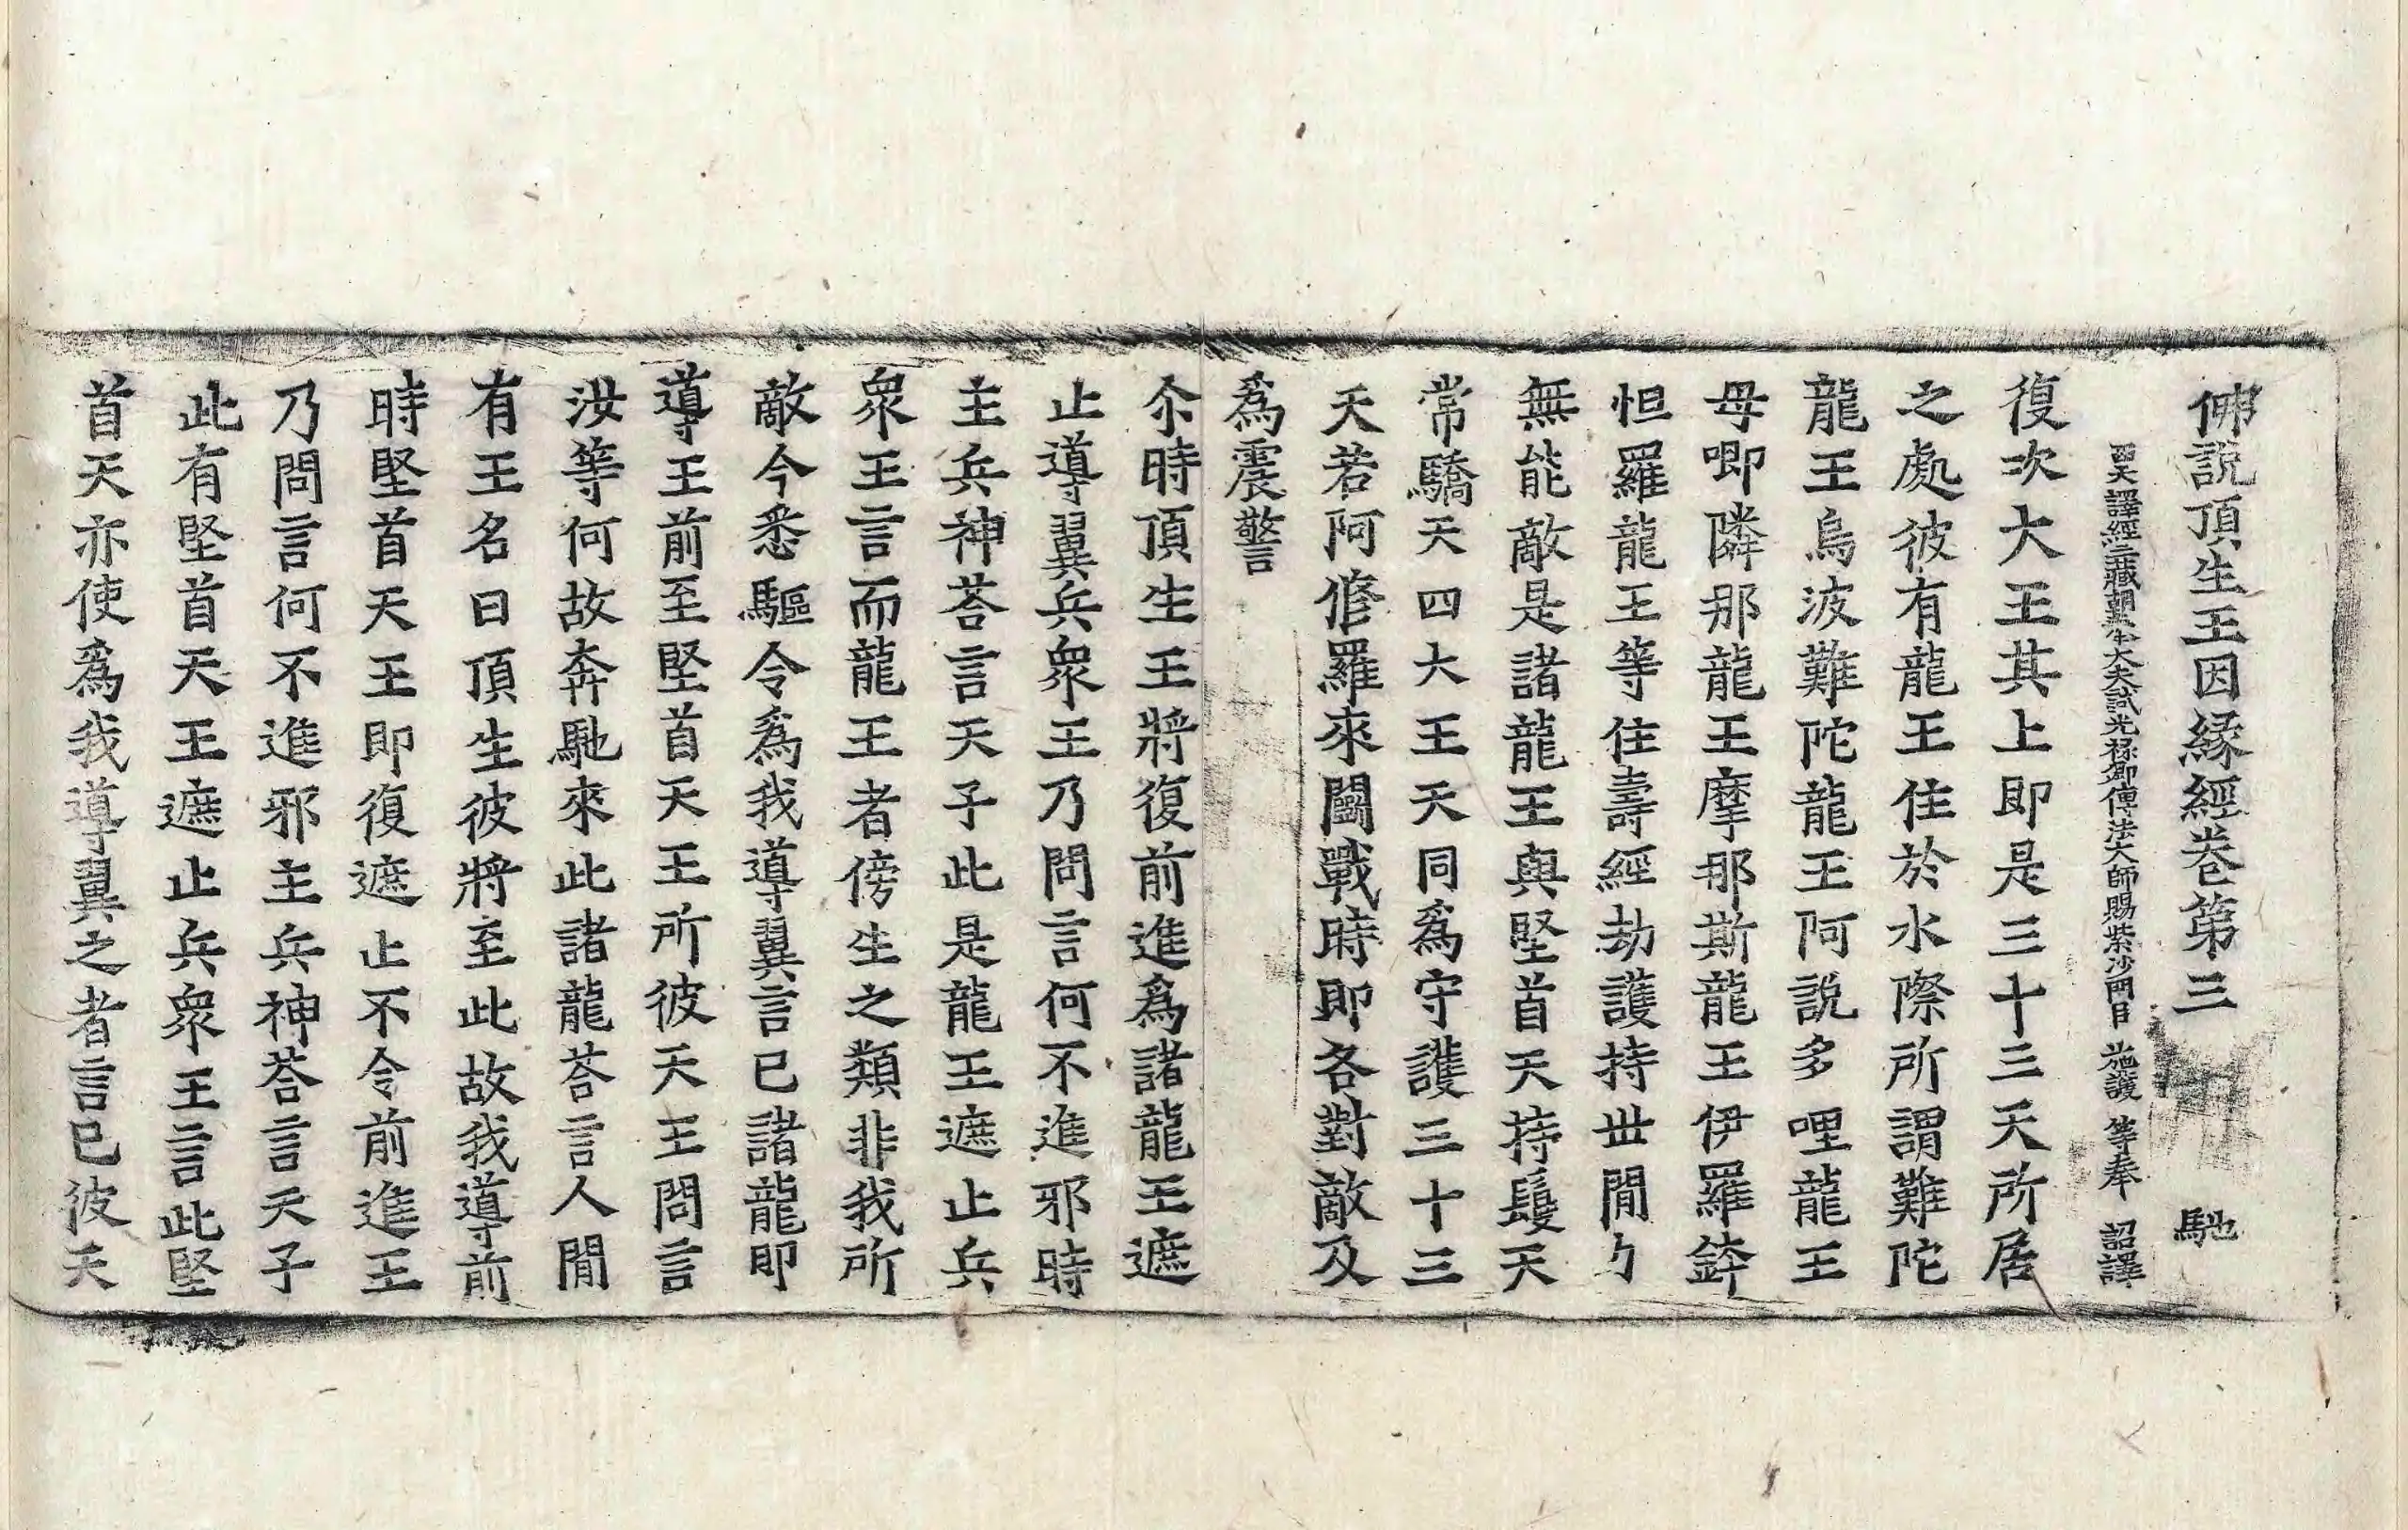 佛說頂生王因緣經卷第三 馳
西天譯經三藏朝奉大夫試光祿卿傳法大師賜紫沙門臣 施護 等奉 詔譯
復次大王其上即是三十三天所居
之處彼有龍王住於水際所謂難陀
龍王烏波難陀龍王阿說多哩龍王
毋唧隣那龍王摩那斯龍王伊羅鉢
怛羅龍王等住壽經劫護持世間力
無能敵是諸龍王與堅首天持鬘天
常驕天四大王天同為守護三十三
天若阿修羅來鬪戰時即各對敵及
為震警
尒時頂生王將復前進為諸龍王遮
止導翼兵衆王乃問言何不進邪時
主兵神荅言天子此是龍王遮止兵
衆王言而龍王者傍生之類非我所
敵今悉驅令為我導翼言已諸龍即
導王前至堅首天王所彼天王問言
汝等何故奔馳來此諸龍荅言人間
有王名曰頂生彼將至此故我導前
時堅首天王即復遮止不令前進王
乃問言何不進邪主兵神荅言天子
此有堅首天王遮止兵衆王言此堅
首天亦使為我導翼之者言已彼天